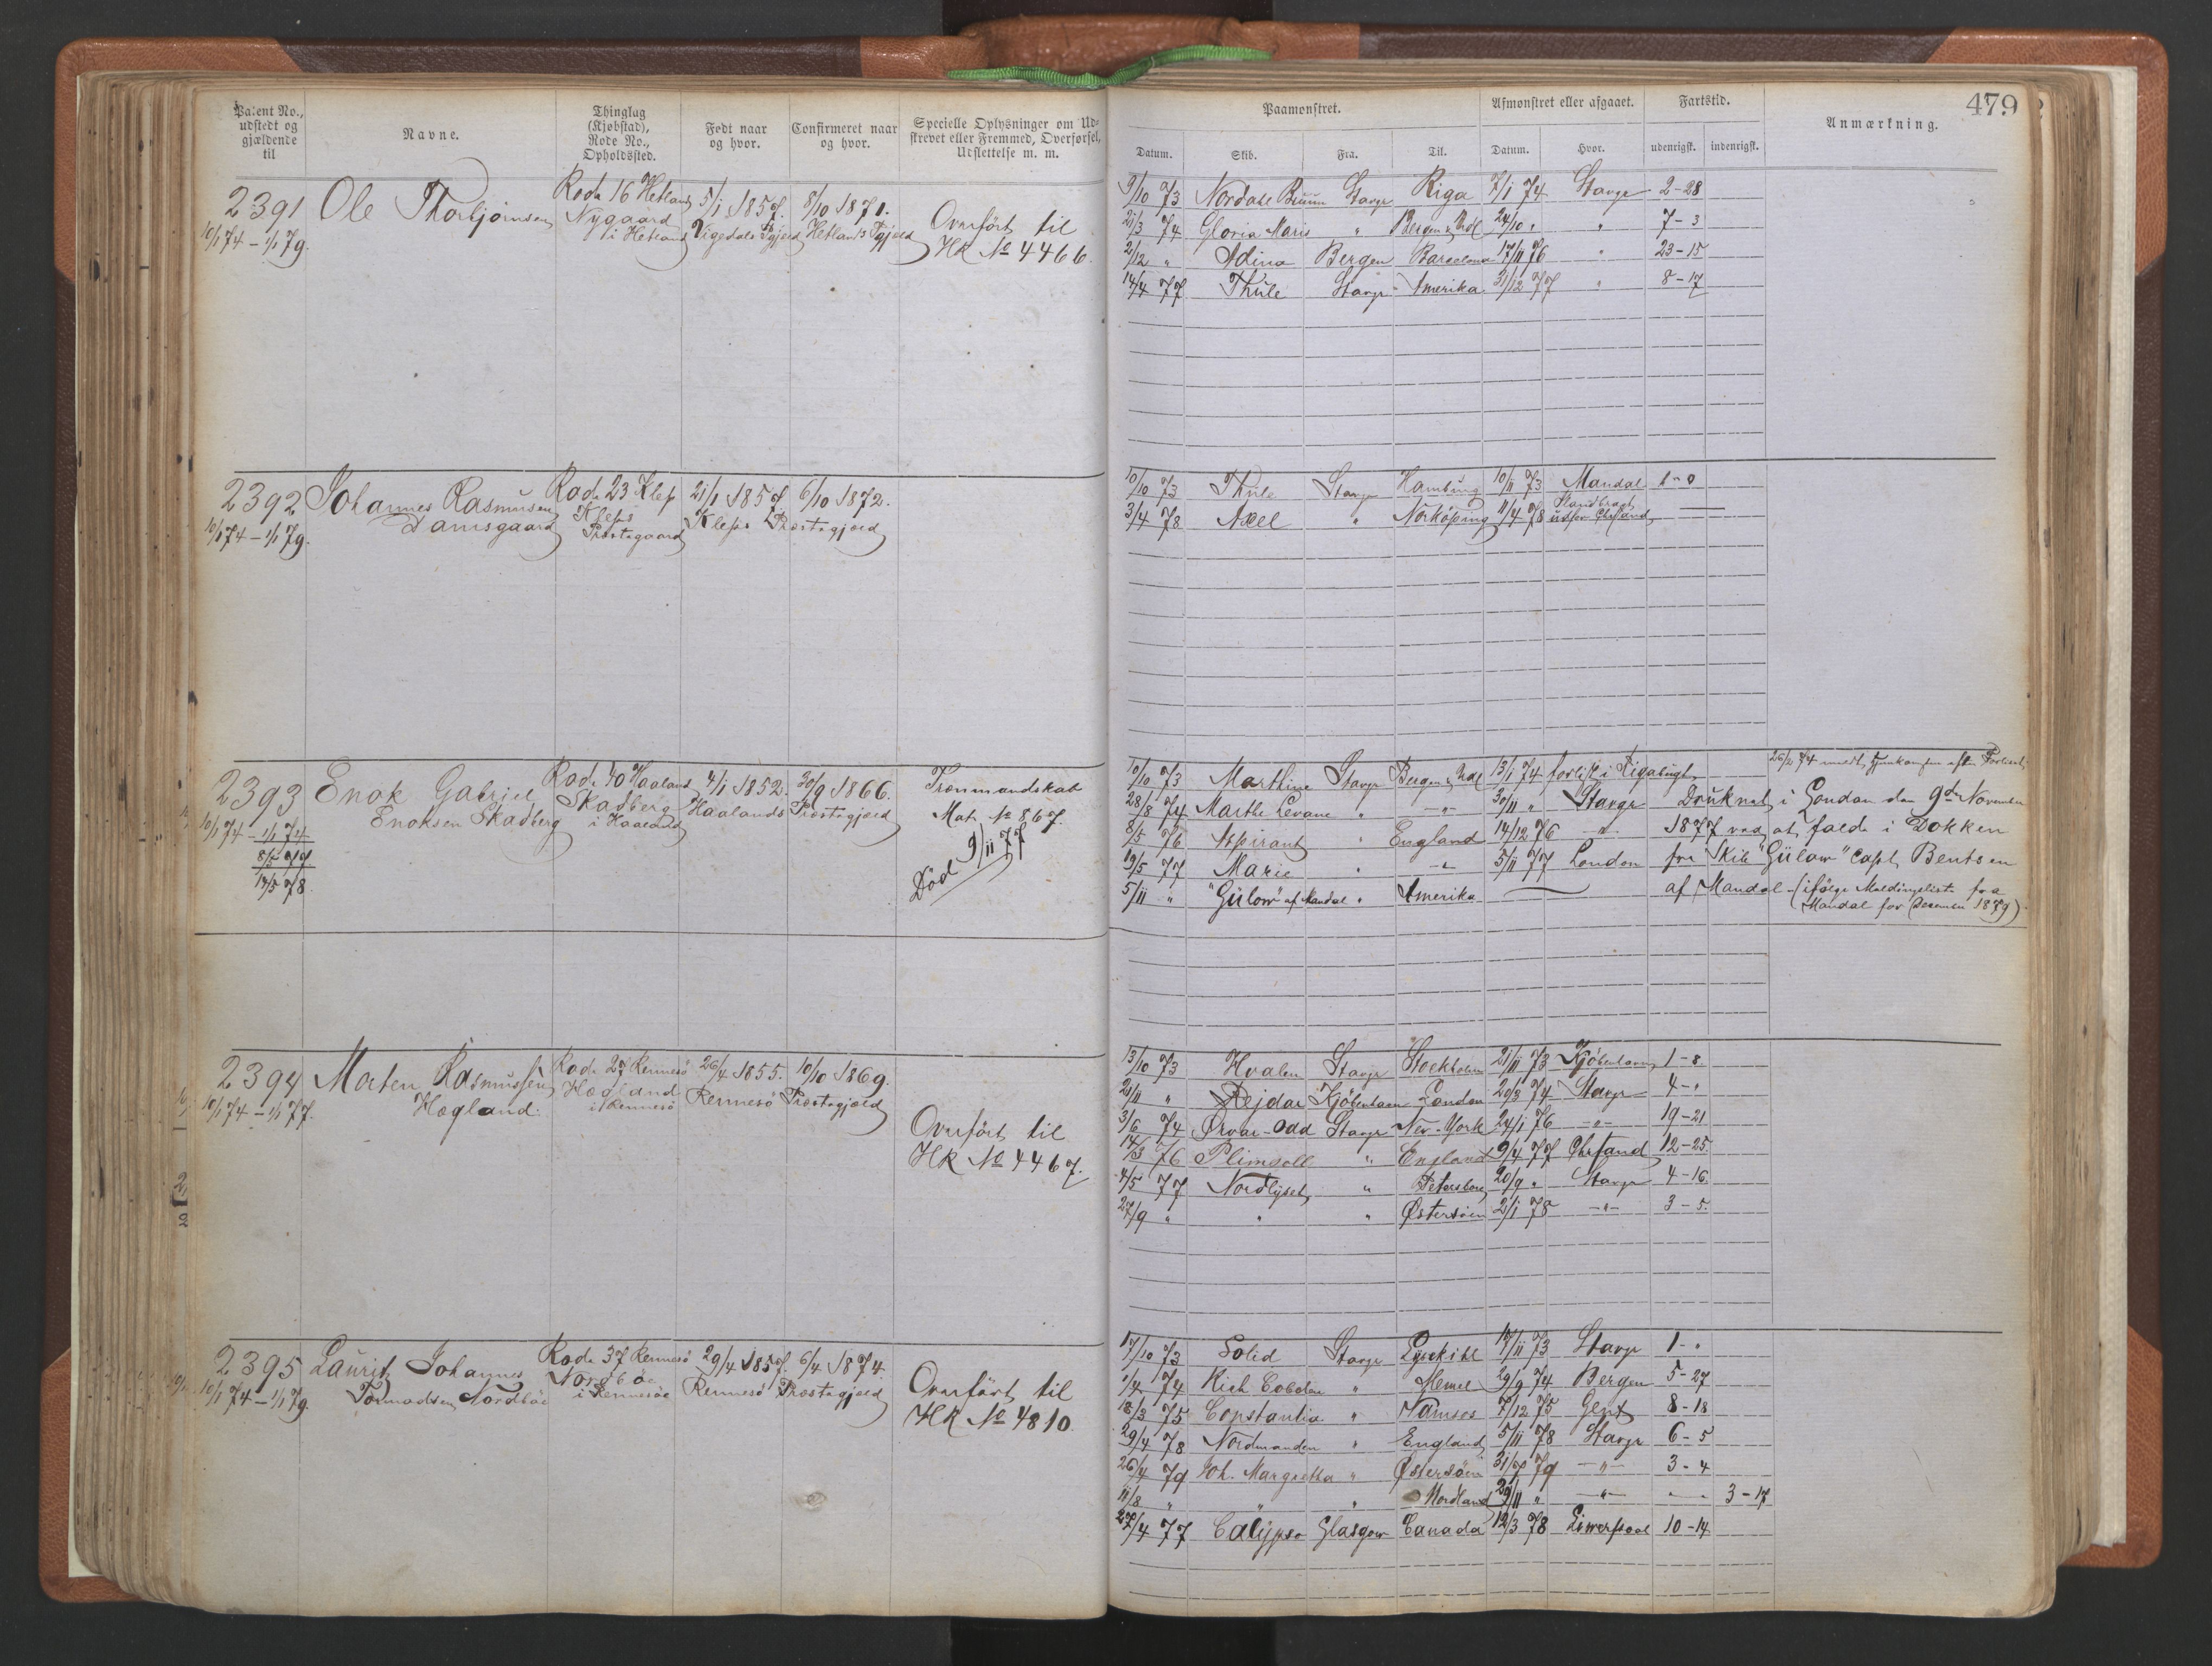 479
Patent No., udstedt og gjældende til
Navne.
Thinglag (Kjøbstad), Rode No., Opholdssted.
Født naar og hvor.
Confirmeret naar og hvor.
Specielle Oplysninger om Udskrevet eller Fremmed, Overførsel, Udslettelse m. m.
Paamønstret.
Datum. Skib. Fra. Til.
Afmønstret eller afgaaet.
Datum. Hvor.
Fartstid.
udenrigsk. indenrigsk.
Anmærkning.
2391 Ole Thorbjørnsen Rode 16 Hetland 5/1 1857. 8/10 1871.
10/1 74 – 1/1 79. Nygaard i Hetland Vigedals Pgjæld Hetlands Pgjæld
Overført til
HK No 4466.
9/10 73 Nordahl Bruun Stavgr Riga 7/1 74 Stavgr 2-28
21/3 74 Gloria Maris " Bergen & Udl 24/10 " " 7-3
2/12 " Adina Bergen Barcelona 17/11 76 " 23-15
14/4 77 Thule Stavgr Amerika 31/12 77 " 8-17
2392 Johannes Rasmussen Rode 23 Klep 21/1 1857. 6/10 1872.
10/1 74 – 1/1 79. Damsgaard Kleps Prestegaard Kleps Præstegjæld
10/10 73 Thule Stavgr Hamburg 10/11 73 Mandal 1-0
3/4 78 Axel " Norköping 11/4 78 Strandbragt udfor Chrsand
2393 Enok Gabriel Rode 40 Haaland 4/1 1852. 30/9 1866.
10/1 74 – 1/1 74 Enoksen Skadberg Skadberg i Haaland Haalands Præstegjæld
13/5 78.
Trænmandskab
Mat. No 867.
Død 9/11 77
10/10 73 Marthine Stavgr Bergen & Udl 13/1 74 forlist i Rigabugt
28/8 74 Marthe Levane " -"- 30/11 " Stavgr
8/5 76 Aspirant " England 14/12 76 -"-
19/5 77 Marie " -"- 5/11 77 London
5/11 " "Gülow" af Mandal " Amerika
Druknet i London den 9de November
1877 ved at falde i Dokken
fra Skib "Gülow" Capt. Bentsen
af Mandal – (ifølge Meldingsliste fra
Mandal for December 1879)
2394 Morten Rasmussen Rode 27 Rennesö 26/4 1855. 10/10 1869.
10/1 74 – 1/1 77. Hægland. Hægland i Rennesö Rennesö Præstegjæld
Overført til
HK No 4467.
13/10 73 Hvalen Stavgr Stockholm 21/11 73 Kjöbenhavn 1-8
21/11 " Rejdar Kjöbenhavn London 20/3 74 Stavgr 4-"
3/6 74 Ørvar-Odd Stavgr New-York 24/1 76 -"- 19-21
14/3 76 Plimsoll " England 9/4 77 Chrsand 12-25
4/5 77 Nordlyset " Petersborg 20/9 " Stavgr 4-16
27/9 " " " Østersöen 2/1 78 -"- 3-5.
2395 Laurits Johannes Rode 37 Rennesö 29/4 1857. 6/4 1874.
10/1 74 – 1/1 79. Tormodsen Nordböe Nordböe i Rennesöe Rennesö Præstegjæld
Overført til
HK No 4810.
17/10 73 Solid Stavgr Lysekihl 17/11 73 Stavgr 1-"
1/4 74 Rich Cobden " Memel 29/9 74 Bergen 5-27
18/3 75 Constantia " Namsos 7/12 75 Gent 8-18
29/4 78 Nordmanden " England 5/11 78 Stavgr 6-5
26/4 79 Joh. Margretha " Østersöen 31/7 79 -"- 3-4
11/8 " " " Nordland 29/11 " -"- 3-17
27/4 77 Calypso Glasgow Canada 12/3 78 Liverpool 10-14